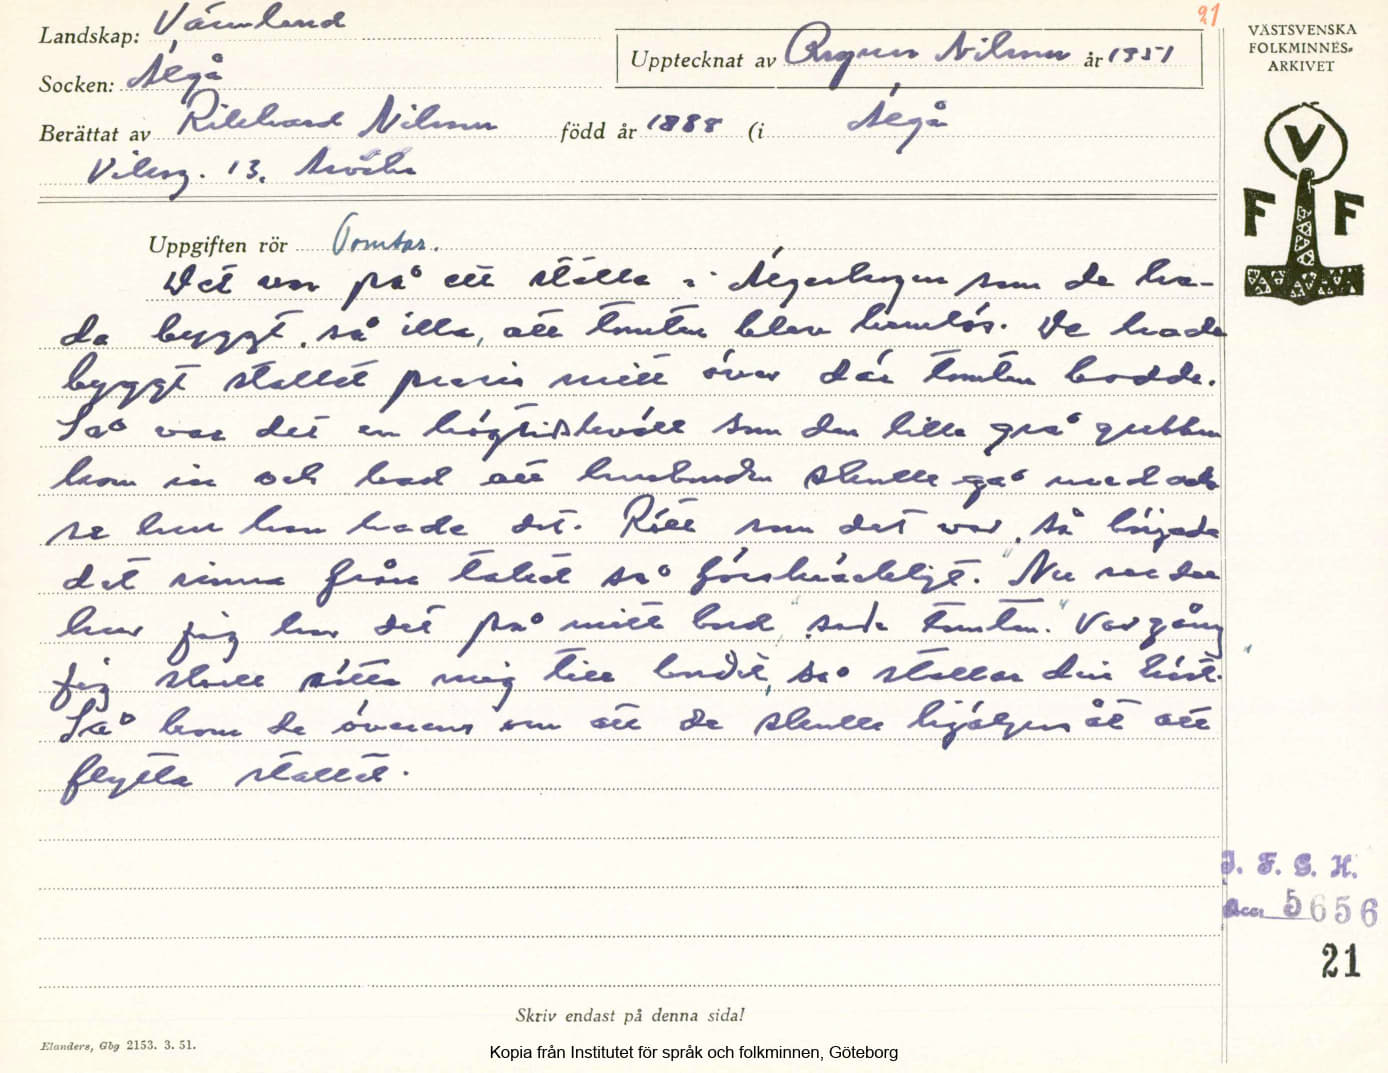 21
Landskap: Värmland
Socken: Älgå
Upptecknat av Ragnar Nilsson år 1951
Berättat av Rikhard Nilsson född år 1888 (i Älgå
Viksg. 13. Arvika
VÄSTSVENSKA
FOLKMINNES-
ARKIVET
V
F F
Uppgiften rör Tomtar.
Det var på ett ställe i Älgåskogen som de ha-
de byggt så illa, att tomten blev hemlös. De hade
byggt stallet precis mitt över där tomten bodde.
Så var det en högtidskväll som den lille grå gubben
kom in och bad att husbonden skulle gå med och
se hur han hade det. Rätt som det var, så började
det rinna från taket så förskräckligt. "Nu ser du
hur jäg har det på mitt bord", sade tomten. "Var gång
jäg skall sätta mig till bordet, så stallar din häst."
Så kom de överens om att de skulle hjälpas åt att
flytta stallet.
I. F. G. H.
Acc. 5656
21
Skriv endast på denna sida!
Elanders, Gbg 2153. 3. 51.
Kopia från Institutet för språk och folkminnen, Göteborg